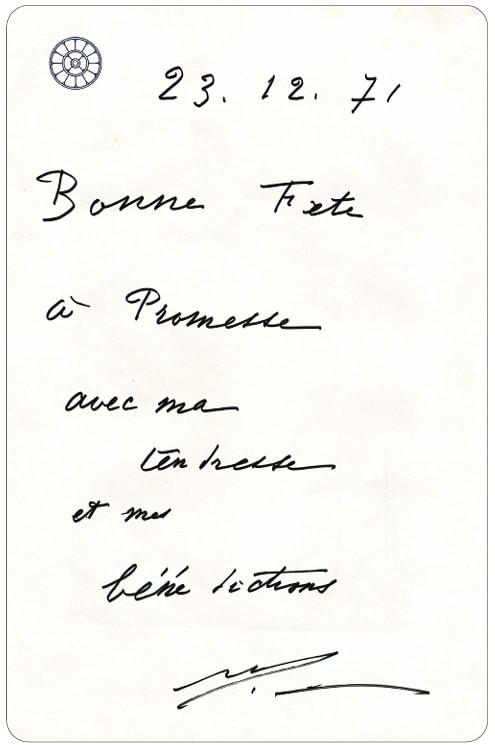 23.12.71
Bonne Fete
à Promesse
avec ma
tendresse
et mes
bénédictions